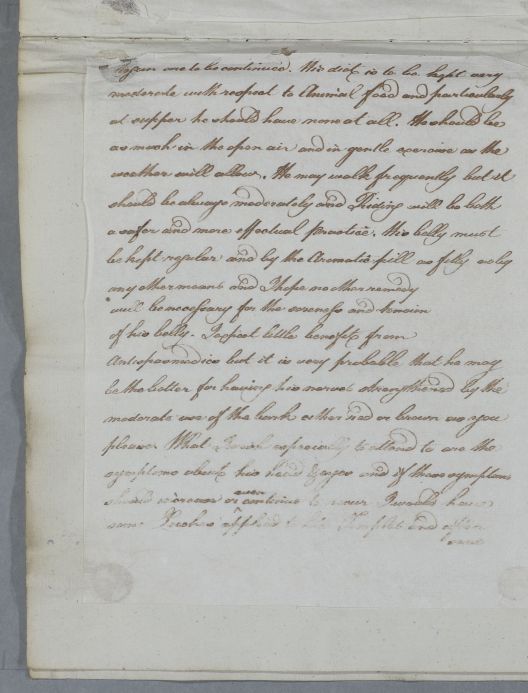 are to be continued. His diet is to be kept very
moderate with respect to Animal food and particularly
at supper he should have none at all. He should be
as much in the open air and in gentle exercise as the
weather will allow. He may walk frequently but it
should be always moderately and Riding will be both
a safer and more effectual practice. His belly must
be kept regular and by the Aromatic pill as fitly as by
any other means and I hope no other remedy
will be necessary for the soreness and tension
of his belly. I expect little benefit from
Antispasmodics but it is very probable that he may
be the better for having his nerves strengthened by the
moderate use of the bark either red or brown as you
please. What I wish especially to attend to are the
symptoms about his head & eyes and if these symptoms
should increase or even continue to recur I would have
some Leeches applied to his Temples and often